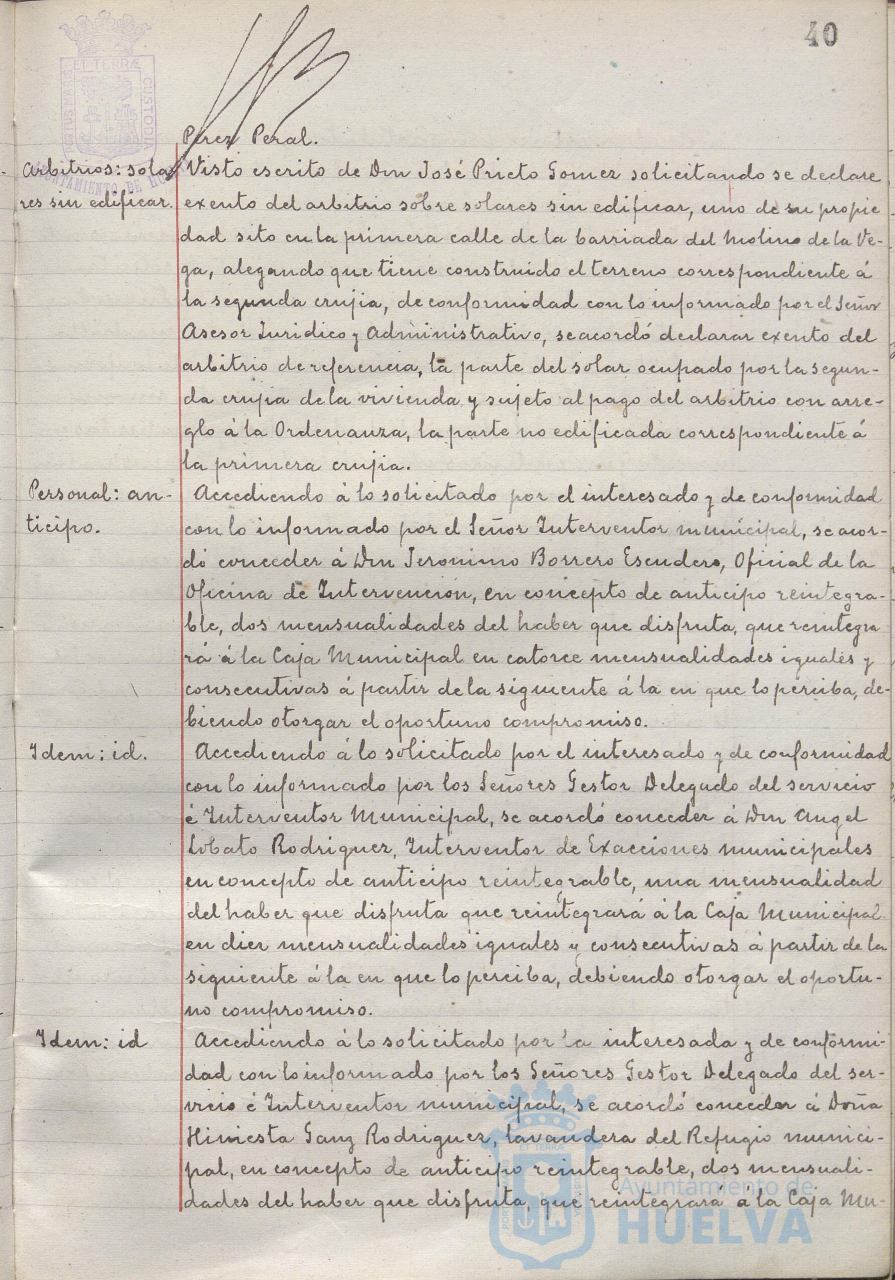 40
EL TERRÆ
CUSTODIA
PORTUS MARIS
AYUNTAMIENTO DE HUELVA
Perez Peral.
Arbitrios: sola
res sin edificar.
Visto escrito de Don José Prieto Gomez solicitando se declare
exento del arbitrio sobre solares sin edificar, uno de su propie
dad sito en la primera calle de la barriada del Molino de la Ve-
ga, alegando que tiene construido el terreno correspondiente á
la segunda crujia, de conformidad con lo informado por el Señor
Asesor Juridico y Administrativo, se acordó declarar exento del
arbitrio de referencia, la parte del solar ocupado por la segun-
da crujia de la vivienda y sujeto al pago del arbitrio con arre-
glo á la Ordenanza, la parte no edificada correspondiente á
la primera crujia.
Personal: an-
ticipo.
Accediendo á lo solicitado por el interesado y de conformidad
con lo informado por el Señor Interventor municipal, se acor-
dó conceder á Don Jeronimo Borrero Escudero, Oficial de la
Oficina de Intervención, en concepto de anticipo reintegra-
ble, dos mensualidades del haber que disfruta, que reintegra
rá á la Caja Municipal en catorce mensualidades iguales y
consecutivas á partir de la siguiente á la en que lo perciba, de-
biendo otorgar el oportuno compromiso.
Idem: id.
Accediendo á lo solicitado por el interesado y de conformidad
con lo informado por los Señores Gestor Delegado del servicio
é Interventor Municipal, se acordó conceder á Don Angel
Lobato Rodriguez, Interventor de Exacciones municipales
en concepto de anticipo reintegrable, una mensualidad
del haber que disfruta que reintegrará á la Caja Municipal
en diez mensualidades iguales y consecutivas á partir de la
siguiente á la en que lo perciba, debiendo otorgar el oportu-
no compromiso.
Idem: id
Accediendo á lo solicitado por la interesada y de conformi-
dad con lo informado por los Señores Gestor Delegado del ser-
vicio é Interventor municipal, se acordó conceder á Doña
Hiniesta Ganz Rodriguez, lavandera del Refugio munici-
pal, en concepto de anticipo reintegrable, dos mensuali-
dades del haber que disfruta, que reintegrará á la Caja Mu-
Ayuntamiento de
HUELVA